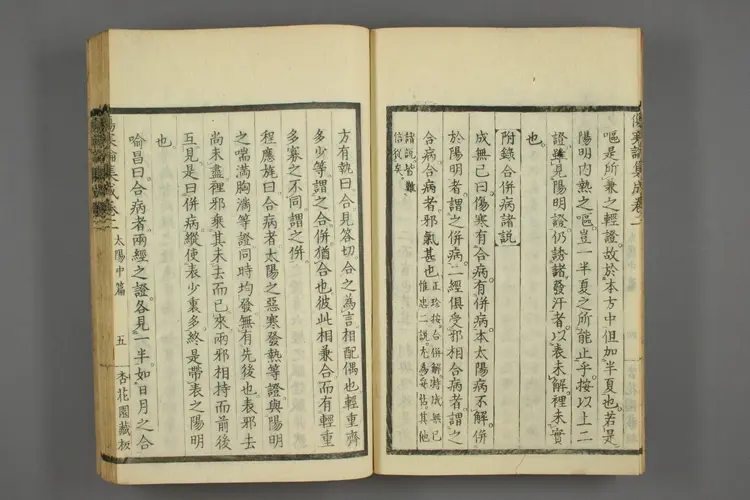 嘔是所兼之輕證。故於本方中但加半夏也。若是
陽明內熱之嘔。豈一半夏之所能止乎。按以上二
證。雖見陽明證。仍謗諸發汗者。以表未解裡未實
也。
附錄合併病諸說
成無已曰。傷寒有合病。有併病。本太陽病不解。併
於陽明者。謂之併病。二經俱受邪相合病者。謂之
合病。合病者。邪氣甚也。正珍按。合併解。特成無已
惟忠二說。尤為每當。其他
諸說皆難
信從矣。
方有執曰。合見答切。合之為言。相配偶也。輕重齊
多少等。謂之合。併猶合也。彼此相兼合。而有輕重
多寡之不同。謂之併。
程應旄曰。合病者。太陽之惡寒發熱等證。與陽明
之喘滿胸滿等證。同時均發。無有先後也。表邪去
尚未盡。裡邪乘其未去而已來。兩邪相持。而前後
互見。是曰併病。縱使表少裏多。終是帶表之陽明
也。
喻昌曰。合病者。兩經之證。各見一半。如日月之合
傷寒論集成卷二
太陽中篇
五
杏花園藏板
傷寒論集成卷二